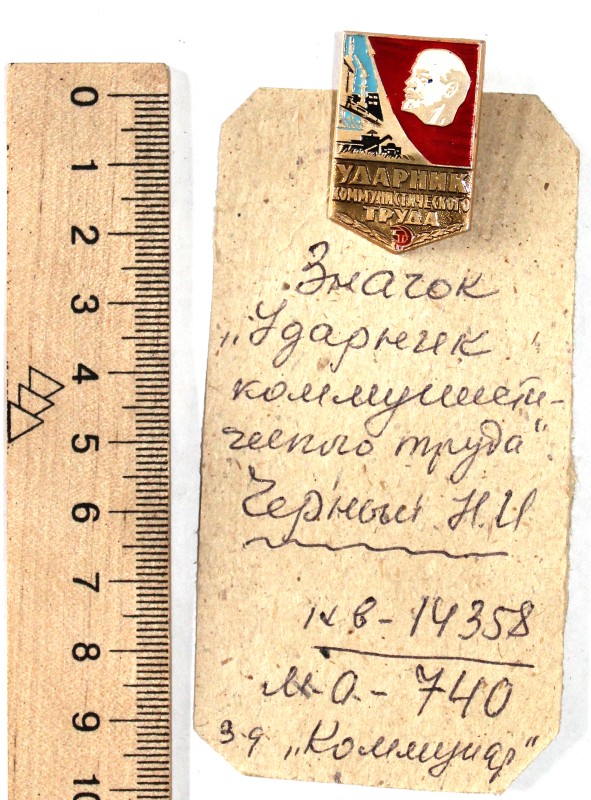 0
1
2
3
4
5
6
7
8
9
10
УДАРНИК
КОММУНИСТИЧЕСКОГО
ТРУДА
Значок
„Ударник
коммунисти-
ческого труда"
Черный Н.И
кв-14358
М-О-740
з-д „Коммунар"